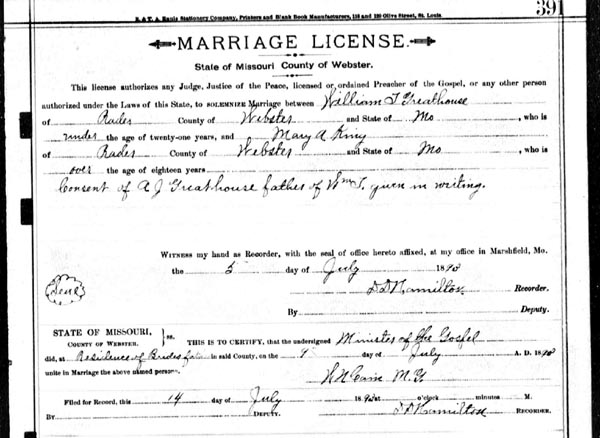 391
B. & T. A. Ennis Stationery Company, Printers and Blank Book Manufacturers, 118 and 120 Olive Street, St. Louis
MARRIAGE LICENSE.
State of Missouri County of Webster.
This license authorizes any Judge, Justice of the Peace, licensed or ordained Preacher of the Gospel, or any other person
authorized under the Laws of this State, to SOLEMNIZE Marriage between William T Greathouse
of Rader County of Webster and State of Mo , who is
under the age of twenty-one years, and Mary A King
of Rader County of Webster and State of Mo , who is
over the age of eighteen years
Consent of A J Greathouse father of Wm T. given in writing.
WITNESS my hand as Recorder, with the seal of office hereto affixed, at my office in Marshfield, Mo.
the 5 day of July 1893
Seal
D D Hamilton Recorder.
By Deputy.
STATE OF MISSOURI,
COUNTY OF WEBSTER. } ss.
THIS IS TO CERTIFY, that the undersigned Minister of the Gospel
did, at Residence of Brides in said County, on the 9 day of July A. D. 1893
unite in Marriage the above named persons.
M. G.
Filed for Record, this 14 day of July 1893 at o'clock minutes M.
By DEPUTY. D D Hamilton RECORDER.